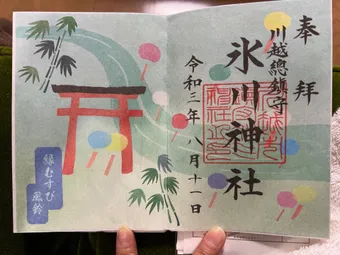 奉拝
川越總鎮守
氷川神社
令和三年八月十一日
縁むすび
風鈴